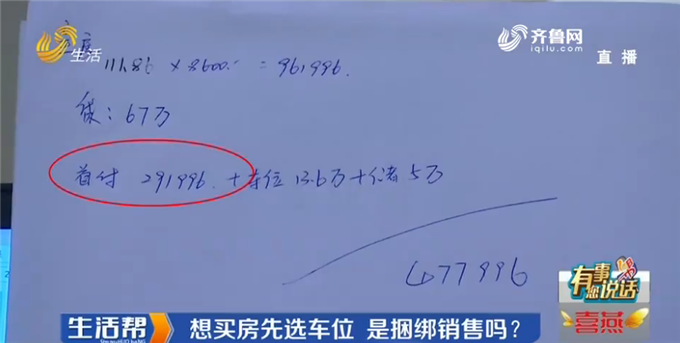 生活
齐鲁网
iqilu.com
直播
111.86 × 8600 = 961996.
贷：67万
首付 291996. + 车位 13.6万 + 储 5万
477996
有事您说话
喜燕
生活帮
想买房先选车位 是捆绑销售吗？